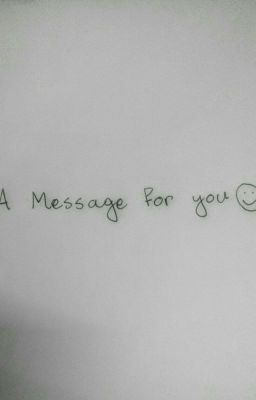 A Message for you☺